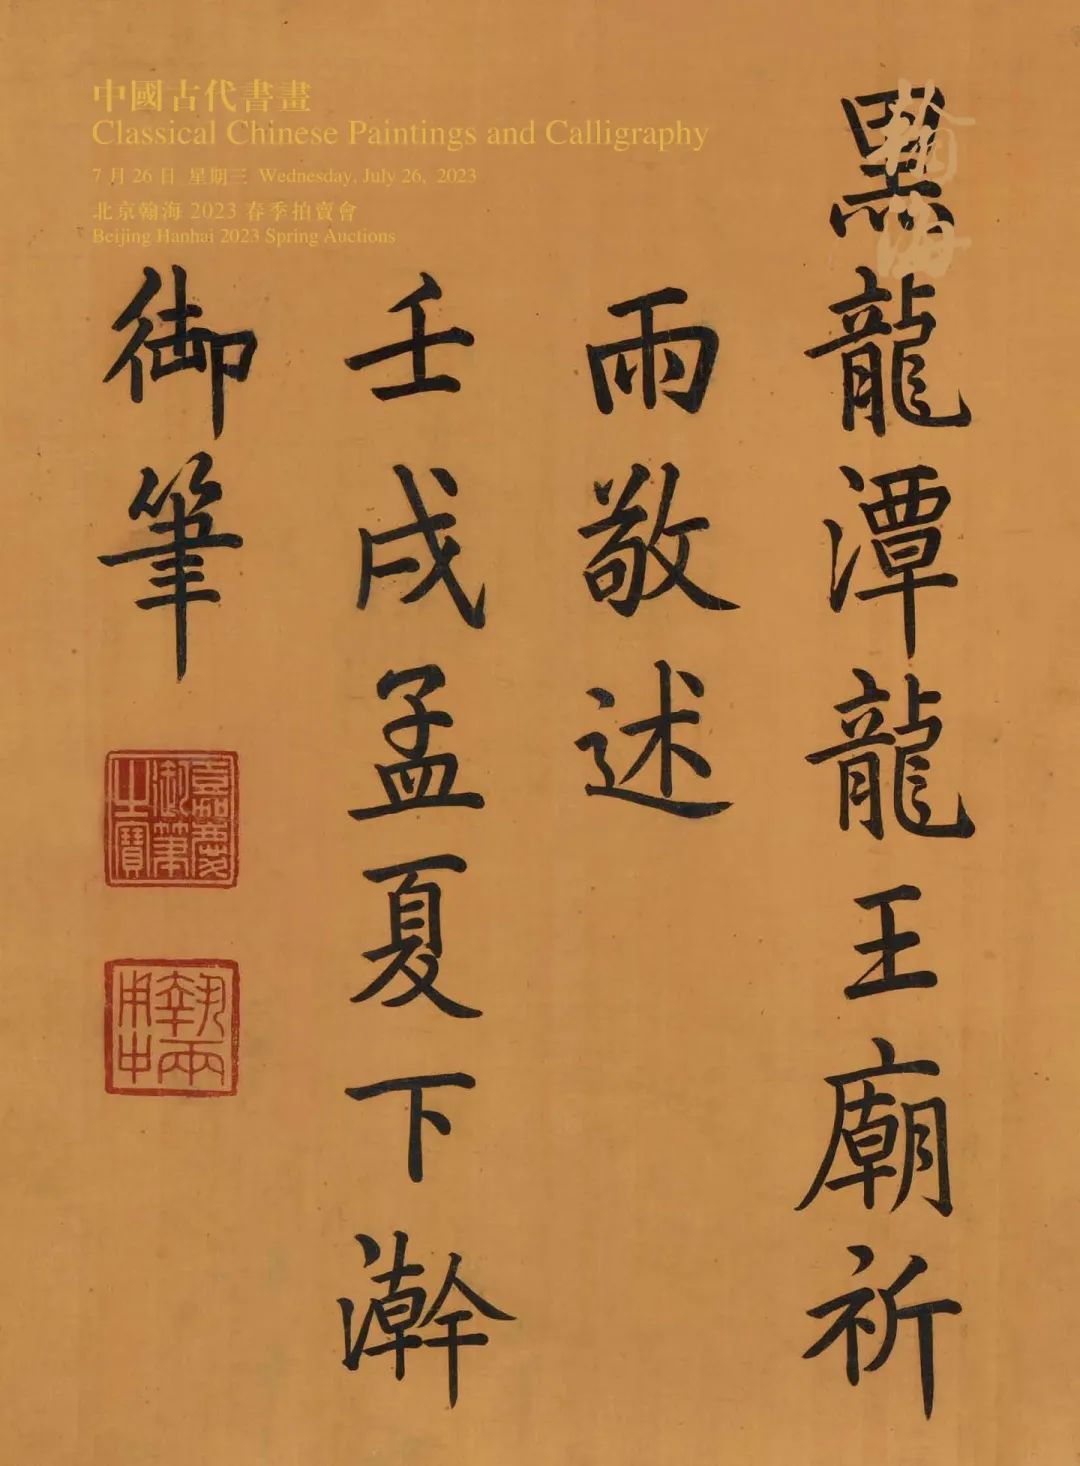 中國古代書畫
Classical Chinese Paintings and Calligraphy
7月26日 星期三 Wednesday, July 26, 2023
北京翰海2023春季拍賣會
Beijing Hanhai 2023 Spring Auctions
翰海
黑龍潭龍王廟祈
雨敬述
壬戌孟夏下澣
御筆
嘉慶御筆之寶
執兩用中